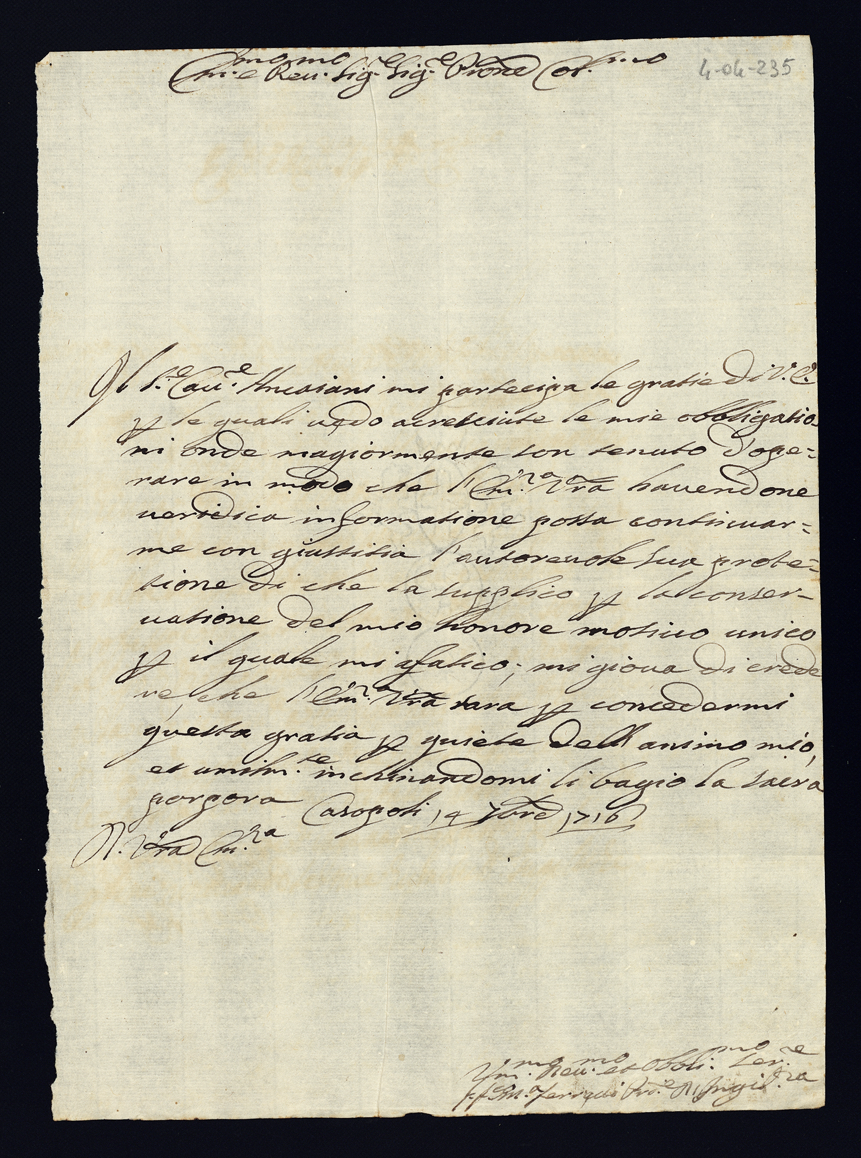 Em.mo e Rev.mo Sig.re Sig.re P̄rone Col.mo
4-04-235
Il S.e Cau.e Ancaiani mi partecipa le gratie di V. E.
p le quali uedo acresciute le mie obbligatio
ni onde magiormente son tenuto d'ope=
rare in modo che l'Em.za Vra hauendone
ueridica informatione possa continuar=
me con giustitia l'autoreuole sua prote=
tione di che la supplico p la conser-
uatione del mio honore motiuo unico
p il quale mi afatico; mi gioua di crede
re, che l'Em.za Vra sara p concedermi
questa gratia p quiete dell animo mio,
et umilm.te inchinandomi li bagio la sacra
porpora Casopoli 14 7bre 1716
A. Vra Em.za
Um.mo Deu.mo et Obbli.mo Ser.re